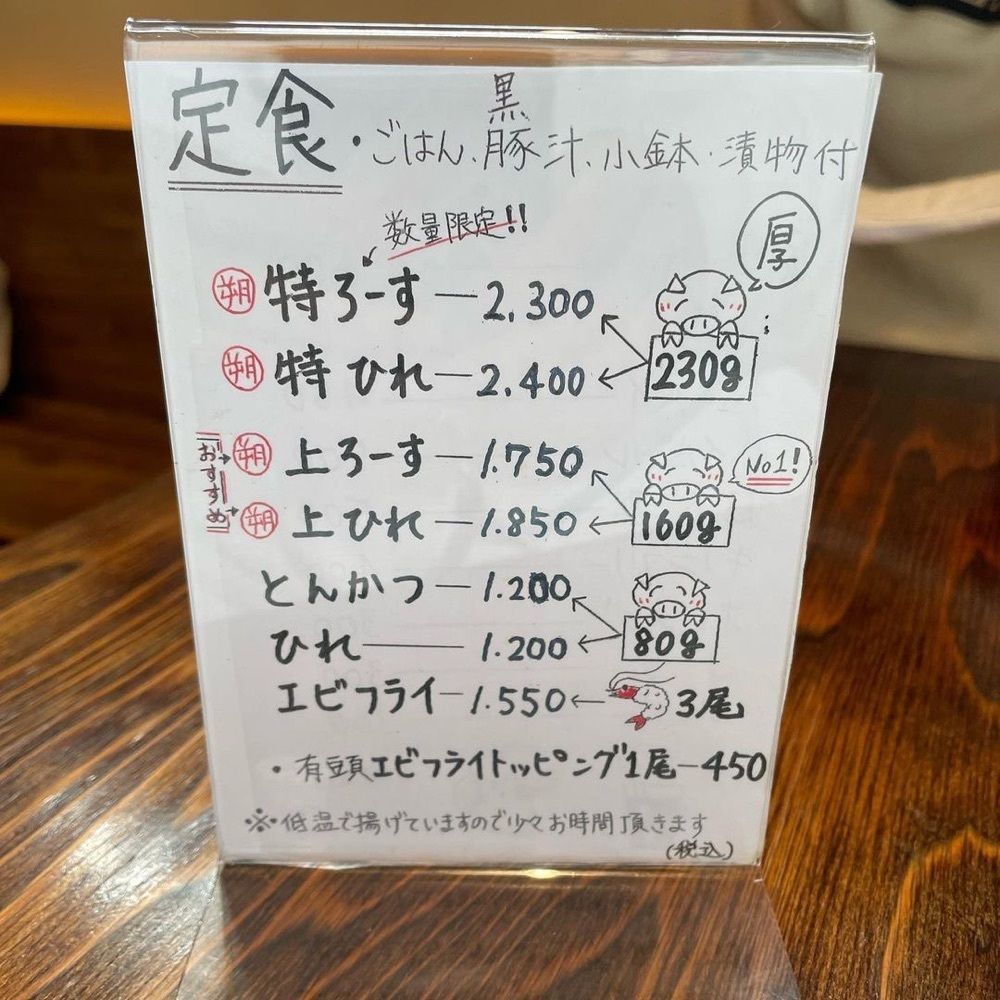 定食・ごはん、黒豚汁、小鉢・漬物付
数量限定!!
厚
朔 特ろーす — 2.300
朔 特ひれ — 2.400
230g
おすすめ
朔 上ろーす — 1.750
朔 上ひれ — 1.850
No1!
160g
とんかつ — 1.200
ひれ — 1.200
80g
エビフライ — 1.550 ← 3尾
・有頭エビフライトッピング1尾—450
※低温で揚げていますので少々お時間頂きます
(税込)